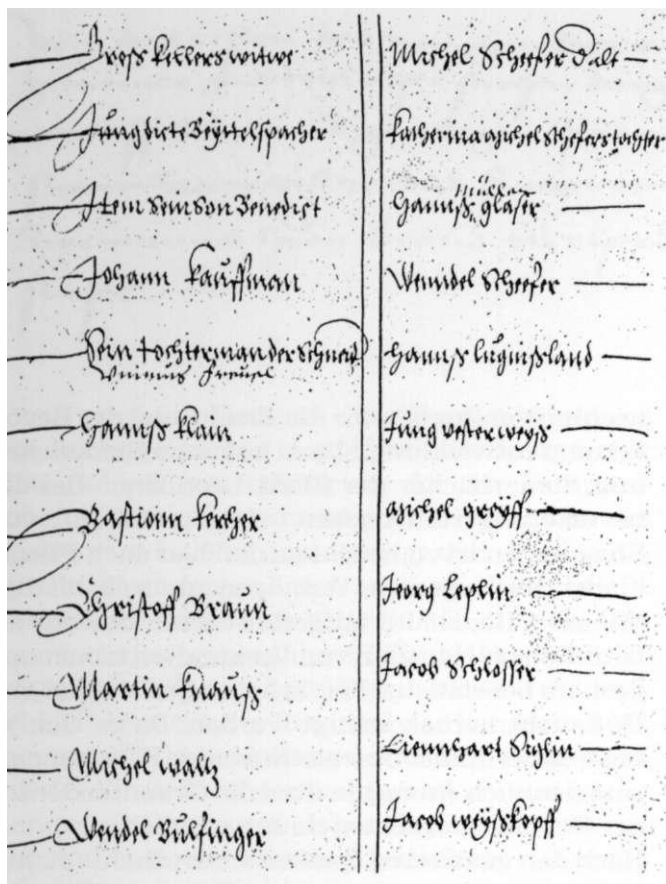 Groß kellers witwe
Jung dicte Beyttelspacher
Item Sein Son Benedict
Johann kauffman
Sein tochterman der Schneid
Hannß klain
Bastiann kercher
Christoff Braun
Martin knauß
Michel waltz
Wendel Bulfinger
Michel Scheefer d alt
katherina Michel Schefers tochter
müller
Hannß glaser
Wenndel Scheefer
Hannß luginßland
Jung vester weyß
Michel greyff
Jeorg Leplin
Jacob Schlosser
Liennhart Siglin
Jacob weyßkopff